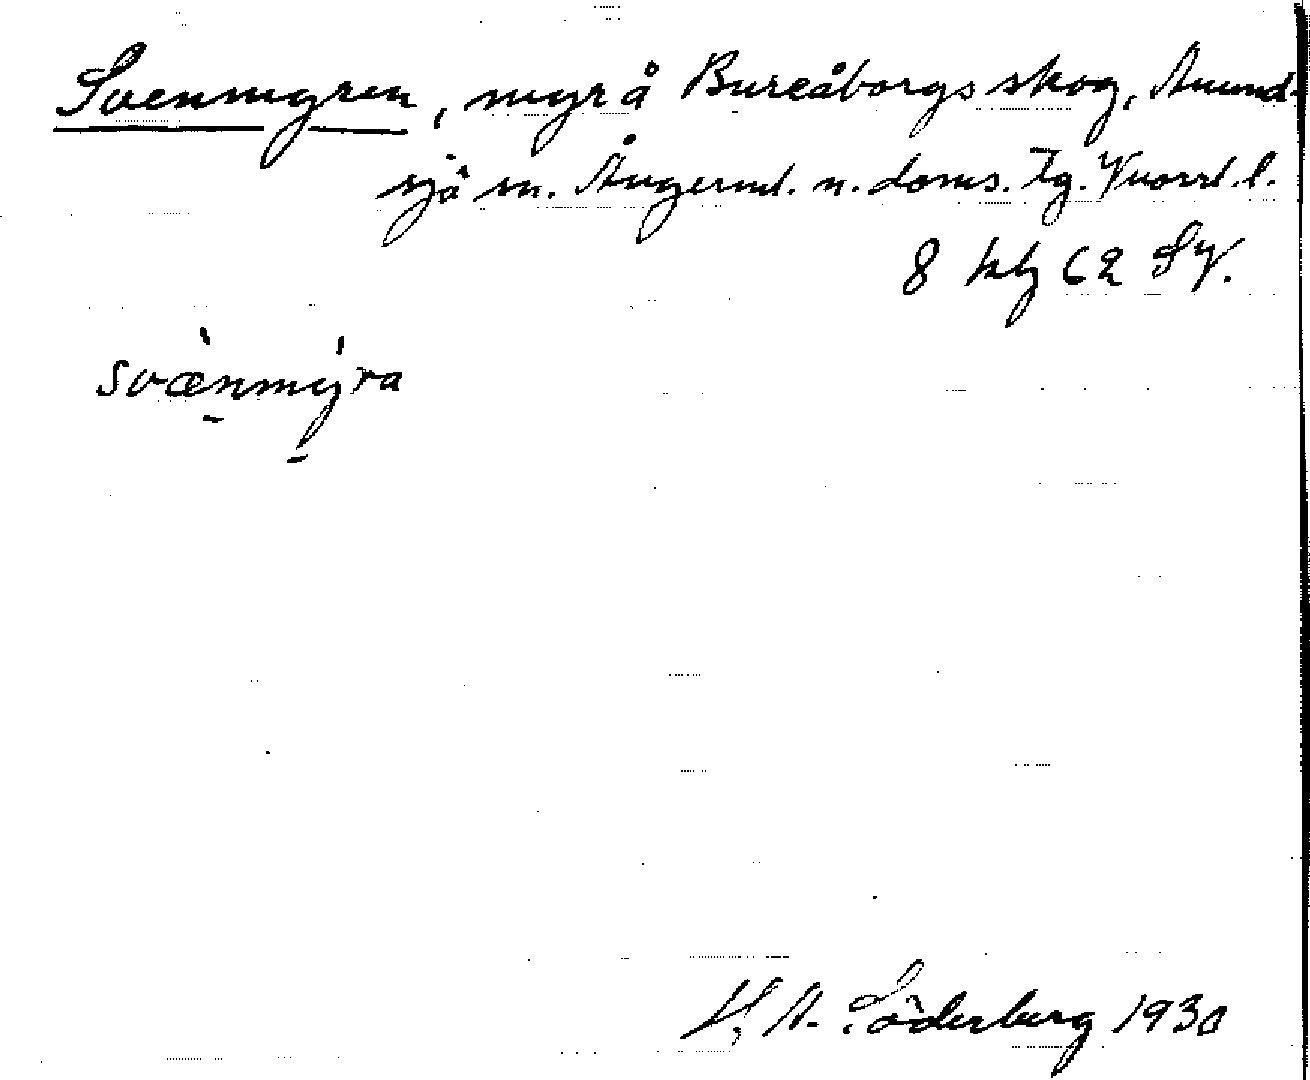 Svenmyren, myr å Bureåborgs skog, Anund-
sjö sn. Ångerml. n. doms. Tg. Vnorrl. l.
8 kbl 62 SV.
svæ̀nmýra
H. A. Söderberg 1930